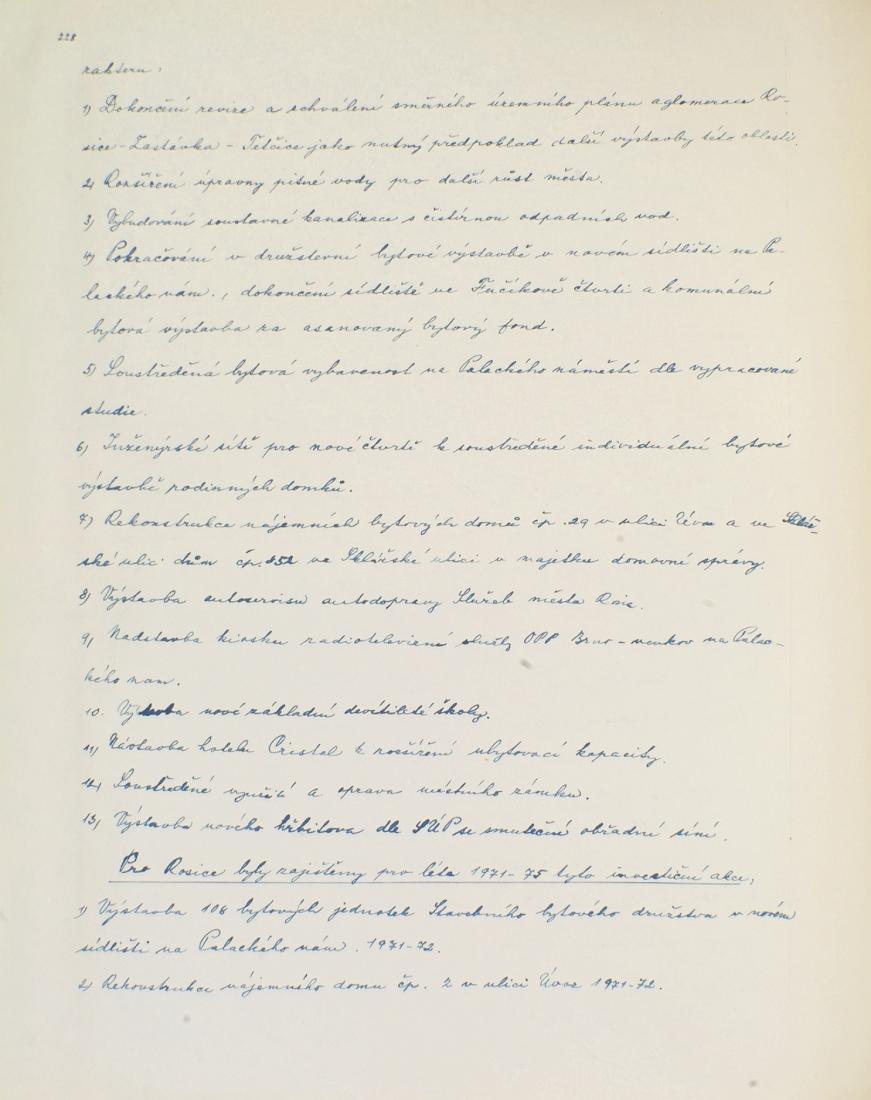 228
rakteru:
1) Dokončení revize a schválení směrného územního plánu aglomerace Ro-
sice - Zastávka - Tetčice jako nutný předpoklad další výstavby této oblasti.
2) Rozšíření úpravny pitné vody pro další růst města.
3) Vybudování soustavné kanalizace s čistírnou odpadních vod.
4) Pokračování v družstevní bytové výstavbě v novém sídlišti na Pa-
lackého nám., dokončení sídliště ve Fučíkově čtvrti a komunální
bytová výstavba za asanovaný bytový fond.
5) Soustředěná bytová vybavenost na Palackého náměstí dle vypracované
studie.
6) Inženýrské sítě pro nové čtvrtě k soustředěné individuélné bytové
výstavbě rodinných domků.
7) Rekonstrukce nájemních bytových domů čp. 29 v ulici Úvoz a ve Sklář-
ské ulic dům čp. 852 ve Sklářské ulici v majetku domovní správy.
8) Výstavba autoservisu autodopravy Služeb města Rosic.
9) Nadstavba kiosku radiotelevizní služby OPP Brno - venkov na Palac-
kého nam.
10. Výstavba nové základní devítileté školy.
11) Nástavba hotelu Cristal k rozšíření ubytovací kapacity.
12) Soustředěné využití a oprava městního zámku.
13) Výstavba nového hřbitova dle SÚP se smuteční obřadní síní.
Pro Rosice byly zajištěny pro léta 1971-75 tyto investiční akce:
1) Výstavba 108 bytových jednotek Stavebního bytového družstva v novém
sídlišti na Palackého nám. 1971-72.
2) Rekonstrukce nájemního domu čp. 2 v ulici Úvoz 1971-72.